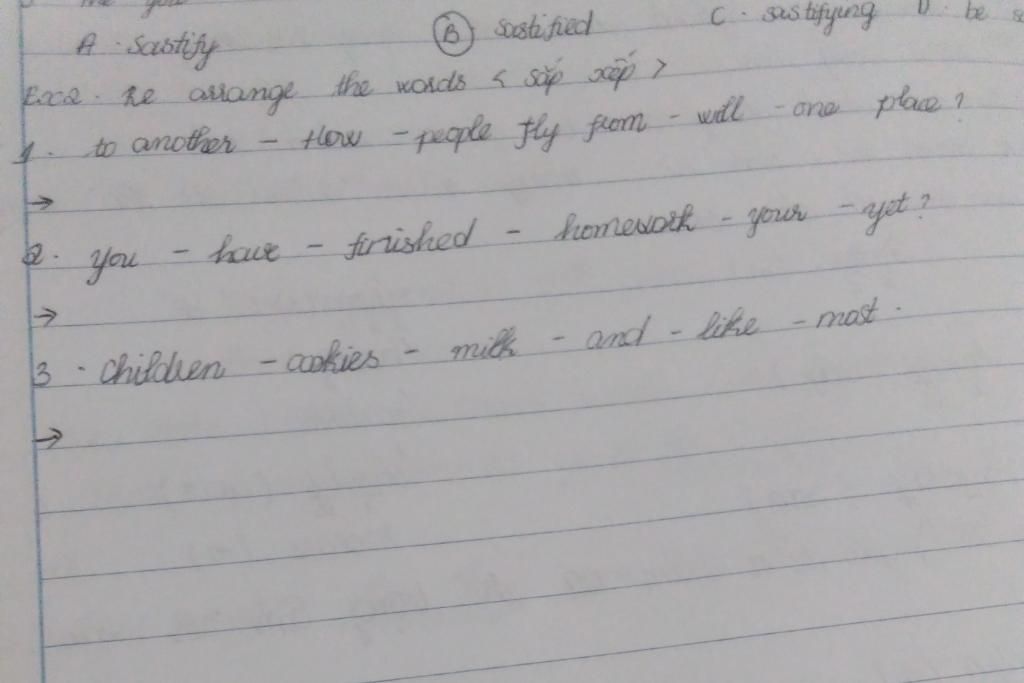 you
A. Sastify B sastified C. sastifying D. be
Ex2. Re arrange the words < sắp xếp >
1. to another - How - people fly from - will - one place?
→
2. you - have - finished - homework - your - yet?
→
3. children - cookies - milk - and - like - most.
→